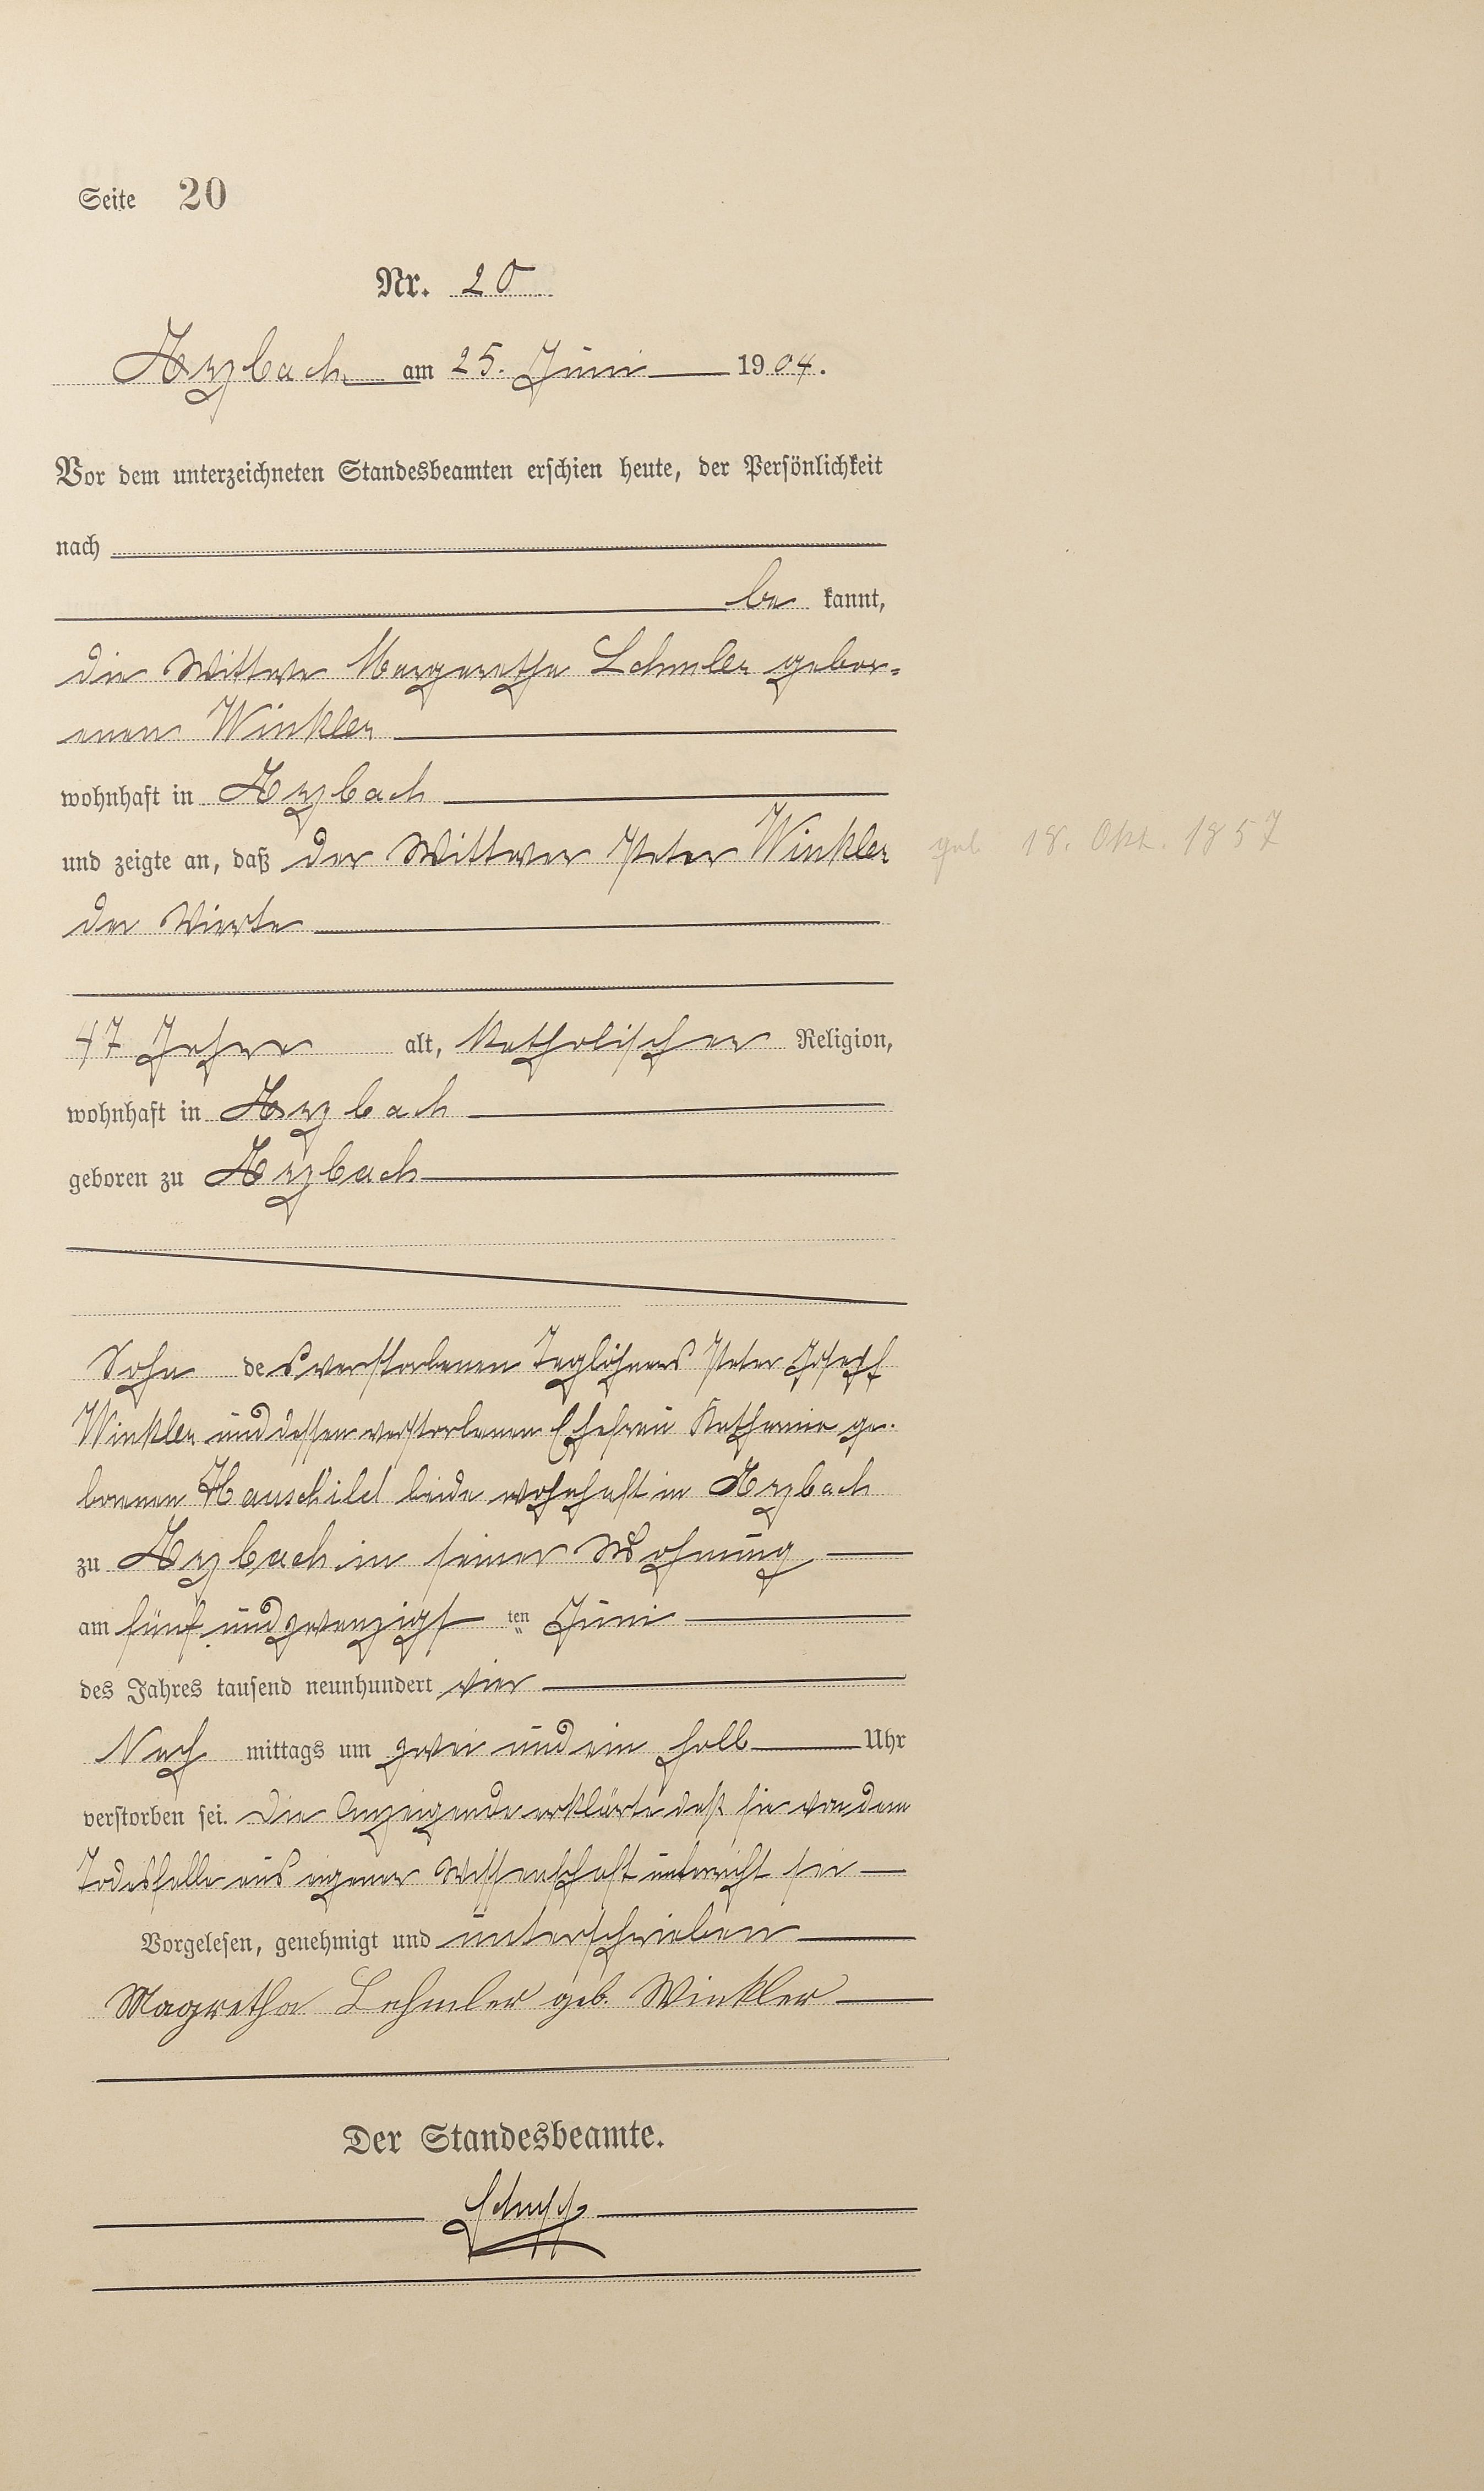 Seite 20
Nr. 20
Arzbach am 25. Juni 1904.
Vor dem unterzeichneten Standesbeamten erschien heute, der Persönlichkeit
nach
be kannt,
die Wittwe Margaretha Lehmler gebor-
enen Winkler
wohnhaft in Arzbach
und zeigte an, daß der Wittwer Peter Winkler geb. 18. Okt. 1857
der Vierte
47 Jahre alt, katholischer Religion,
wohnhaft in Arzbach
geboren zu Arzbach
Sohn des verstorbenen Taglöhners Peter Joseph
Winkler und dessen verstorbenen Ehefrau Katharina ge-
borenen Hauschild beide wohnhaft in Arzbach
zu Arzbach in seiner Wohnung
am fünf und zwanzigst ten Juni
des Jahres tausend neunhundert vier
Nach mittags um zwei und ein halb Uhr
verstorben sei. Die Anzeigende erklärte daß sie von dem
Todesfalle aus eigener Wissenschaft unterricht sei
Vorgelesen, genehmigt und unterschrieben
Magretha Lehmler geb. Winkler
Der Standesbeamte.